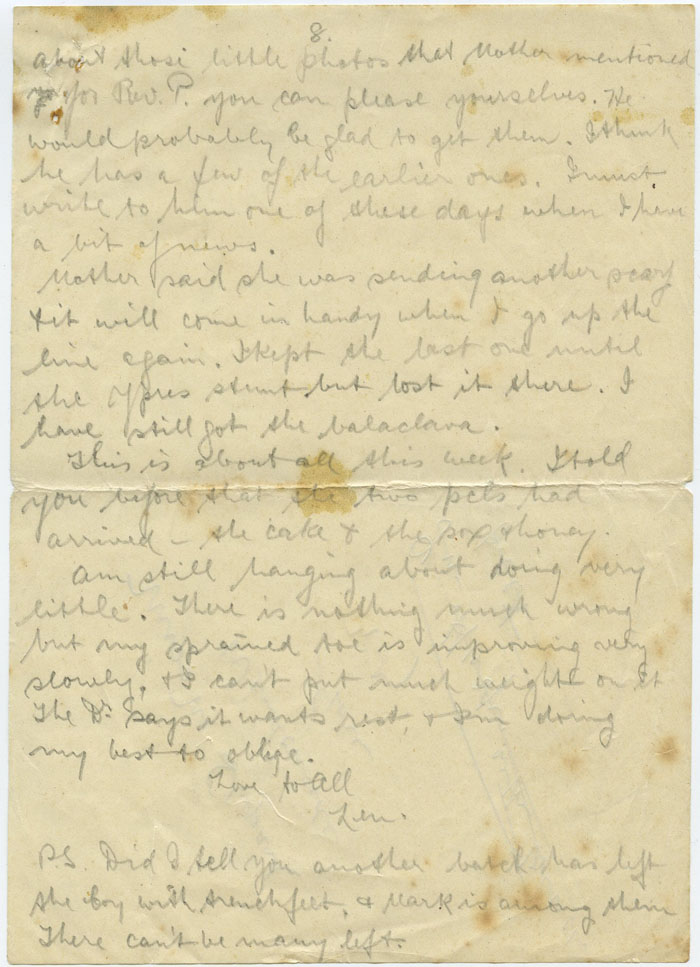 8.
about those little photos that Mother mentioned
for Rev. P. you can please yourselves. He
would probably be glad to get them. I think
he has a few of the earlier ones. I must
write to him one of these days when I have
a bit of news.
Mother said she was sending another scarf
& it will come in handy when I go up the
line again. I kept the last one until
the Ypres stunt but lost it there. I
have still got the balaclava.
This is about all this week. I told
you before that the two pcls had
arrived – the cake & the sox & honey.
Am still hanging about doing very
little. There is nothing much wrong
but my sprained toe is improving very
slowly, & I can't put much weight on it
The Dr. says it wants rest, & I'm doing
my best to oblige.
Love to All
Len.
P.S. Did I tell you another batch has left
the Coy with trench feet, & Mark is among them
There can't be many left.